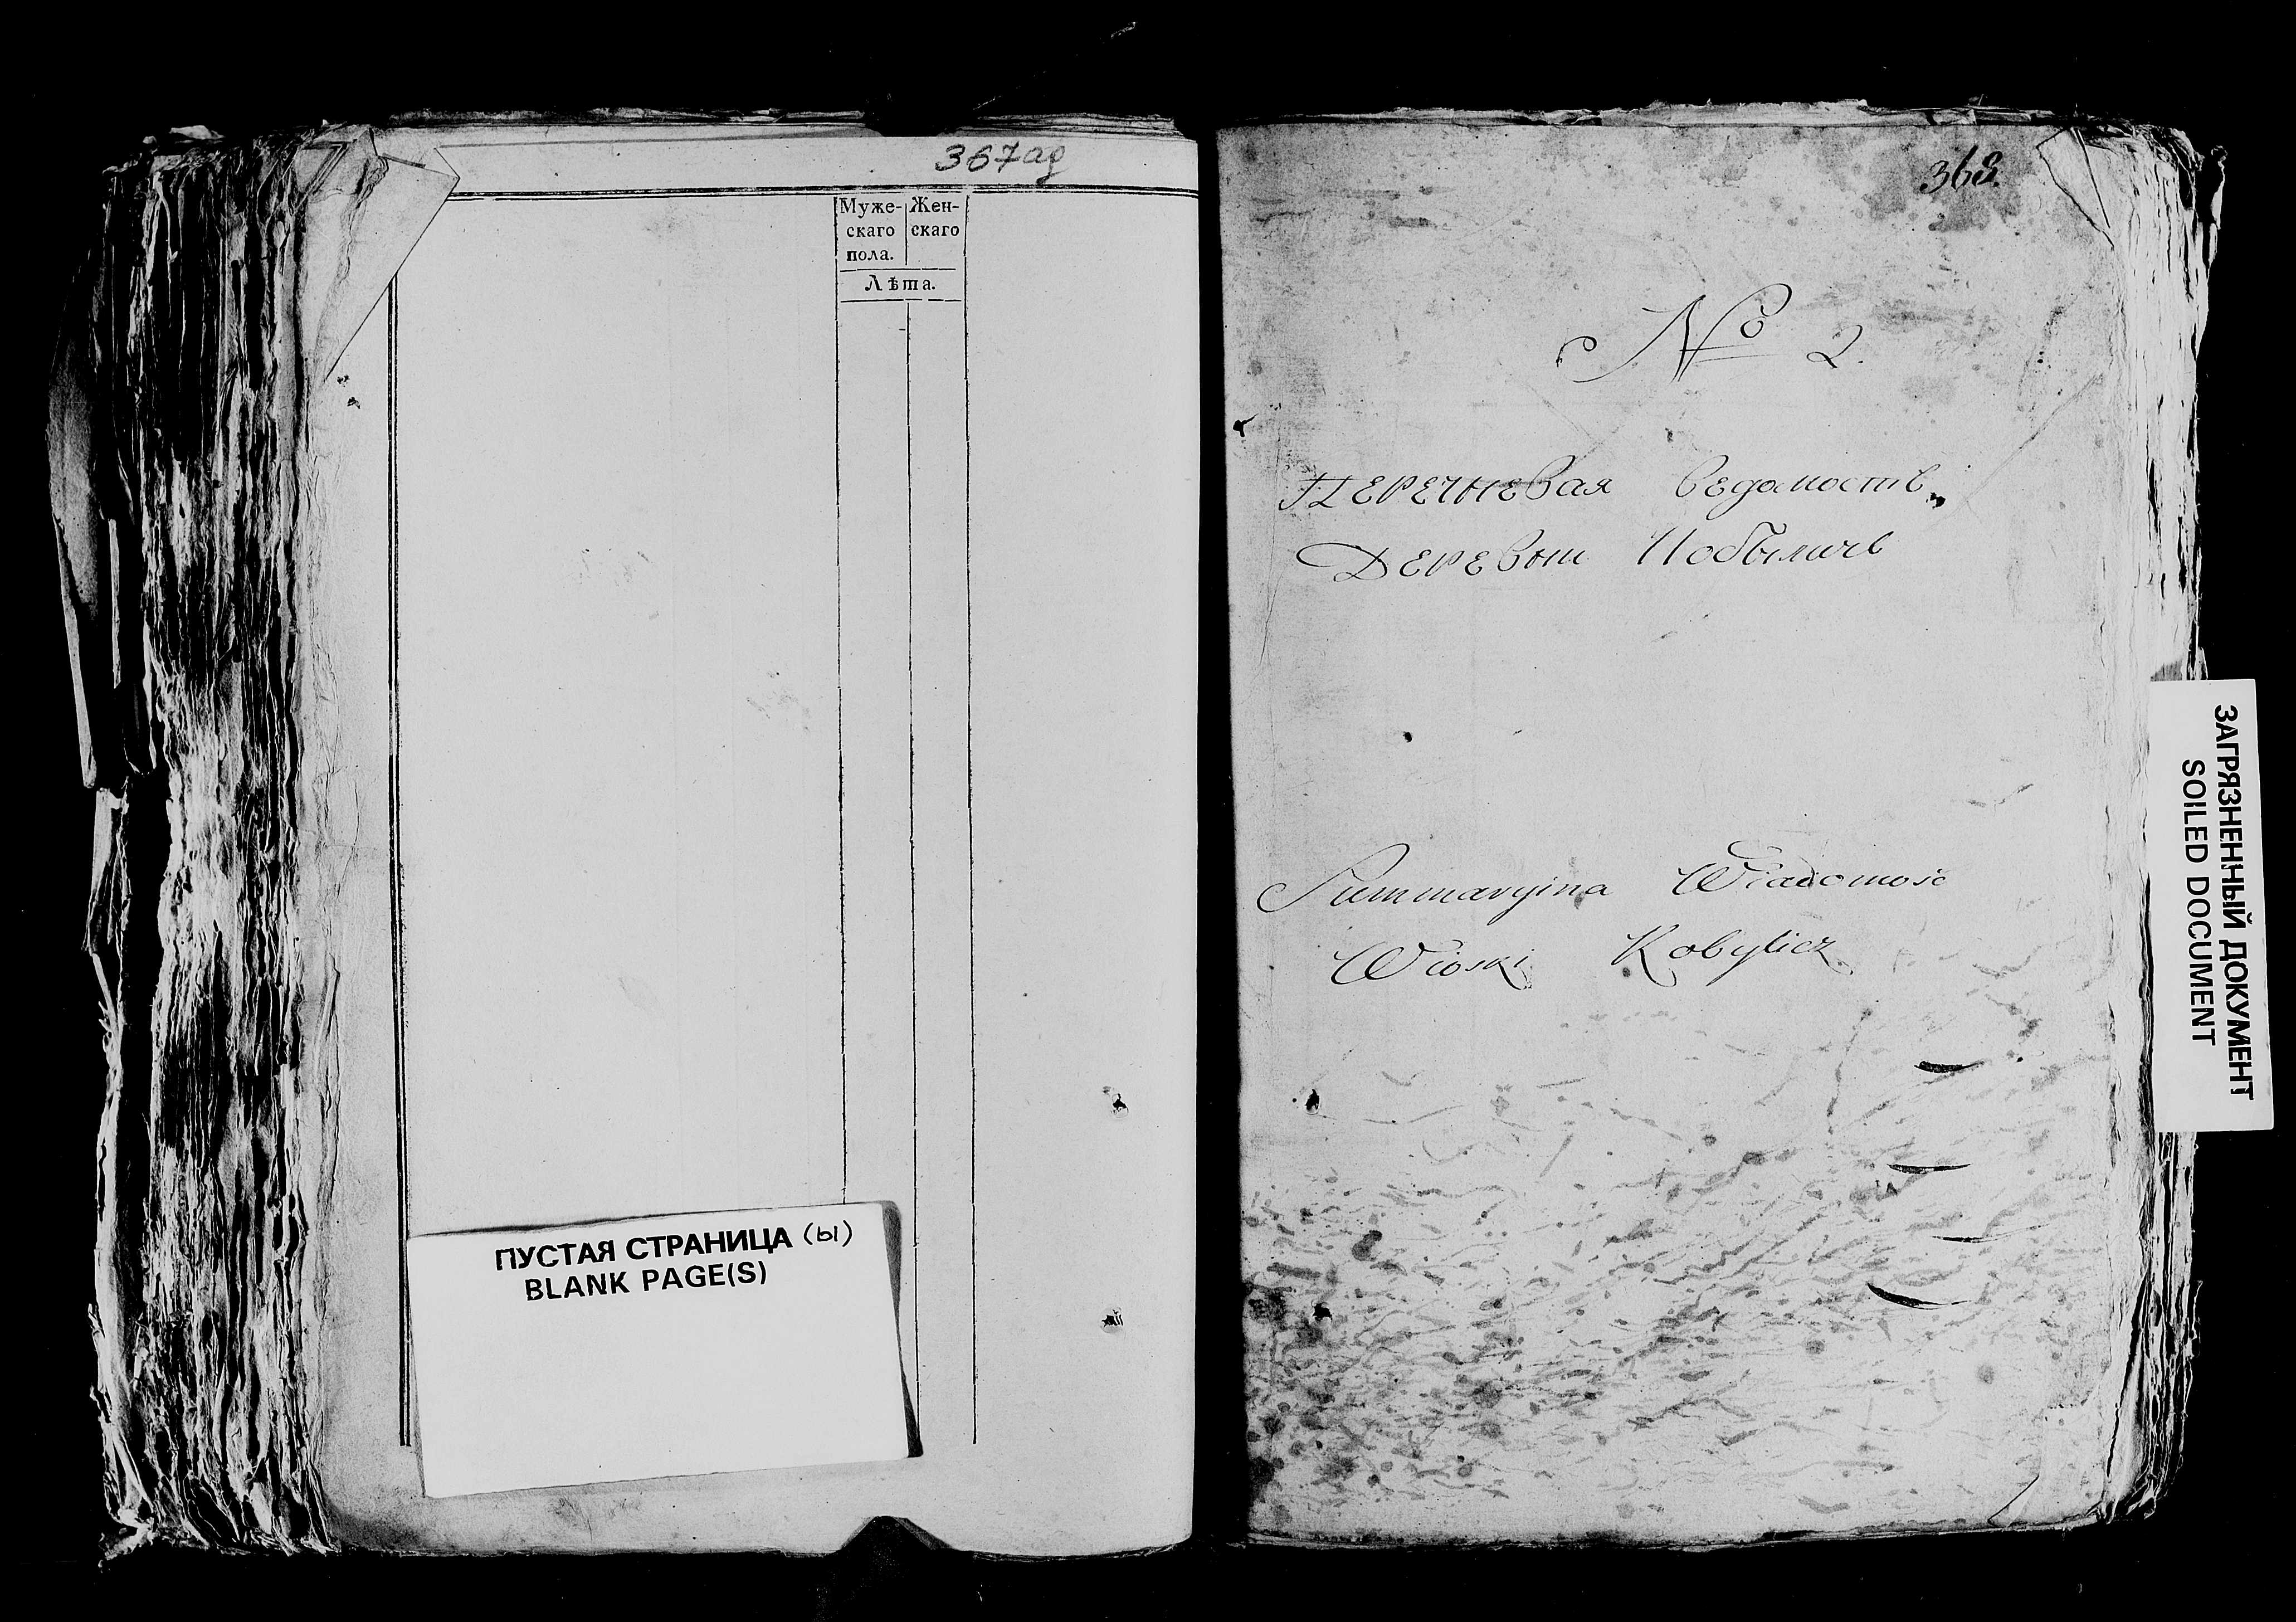 367 ад
Муже- Жен-
скаго скаго
пола.
Лѣта.
ПУСТАЯ СТРАНИЦА (ы)
BLANK PAGE(S)
368.
№ 2.
Перечневая ведомость,
Деревни Кобыличь
Summaryina Wiadomosc
Wioski Kobylicz
ЗАГРЯЗНЕННЫЙ ДОКУМЕНТ
SOILED DOCUMENT